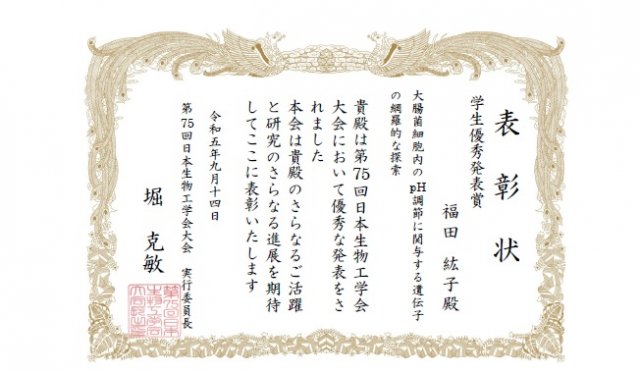 表彰状
学生優秀発表賞
福田 紘子殿
大腸菌細胞内のpH調節に関与する遺伝子
の網羅的な探索
貴殿は第75回日本生物工学会
大会において優秀な発表をさ
れました
本会は貴殿のさらなるご活躍
と研究のさらなる進展を期待
してここに表彰いたします
令和五年九月十四日
第75回日本生物工学会大会 実行委員長
堀 克敏